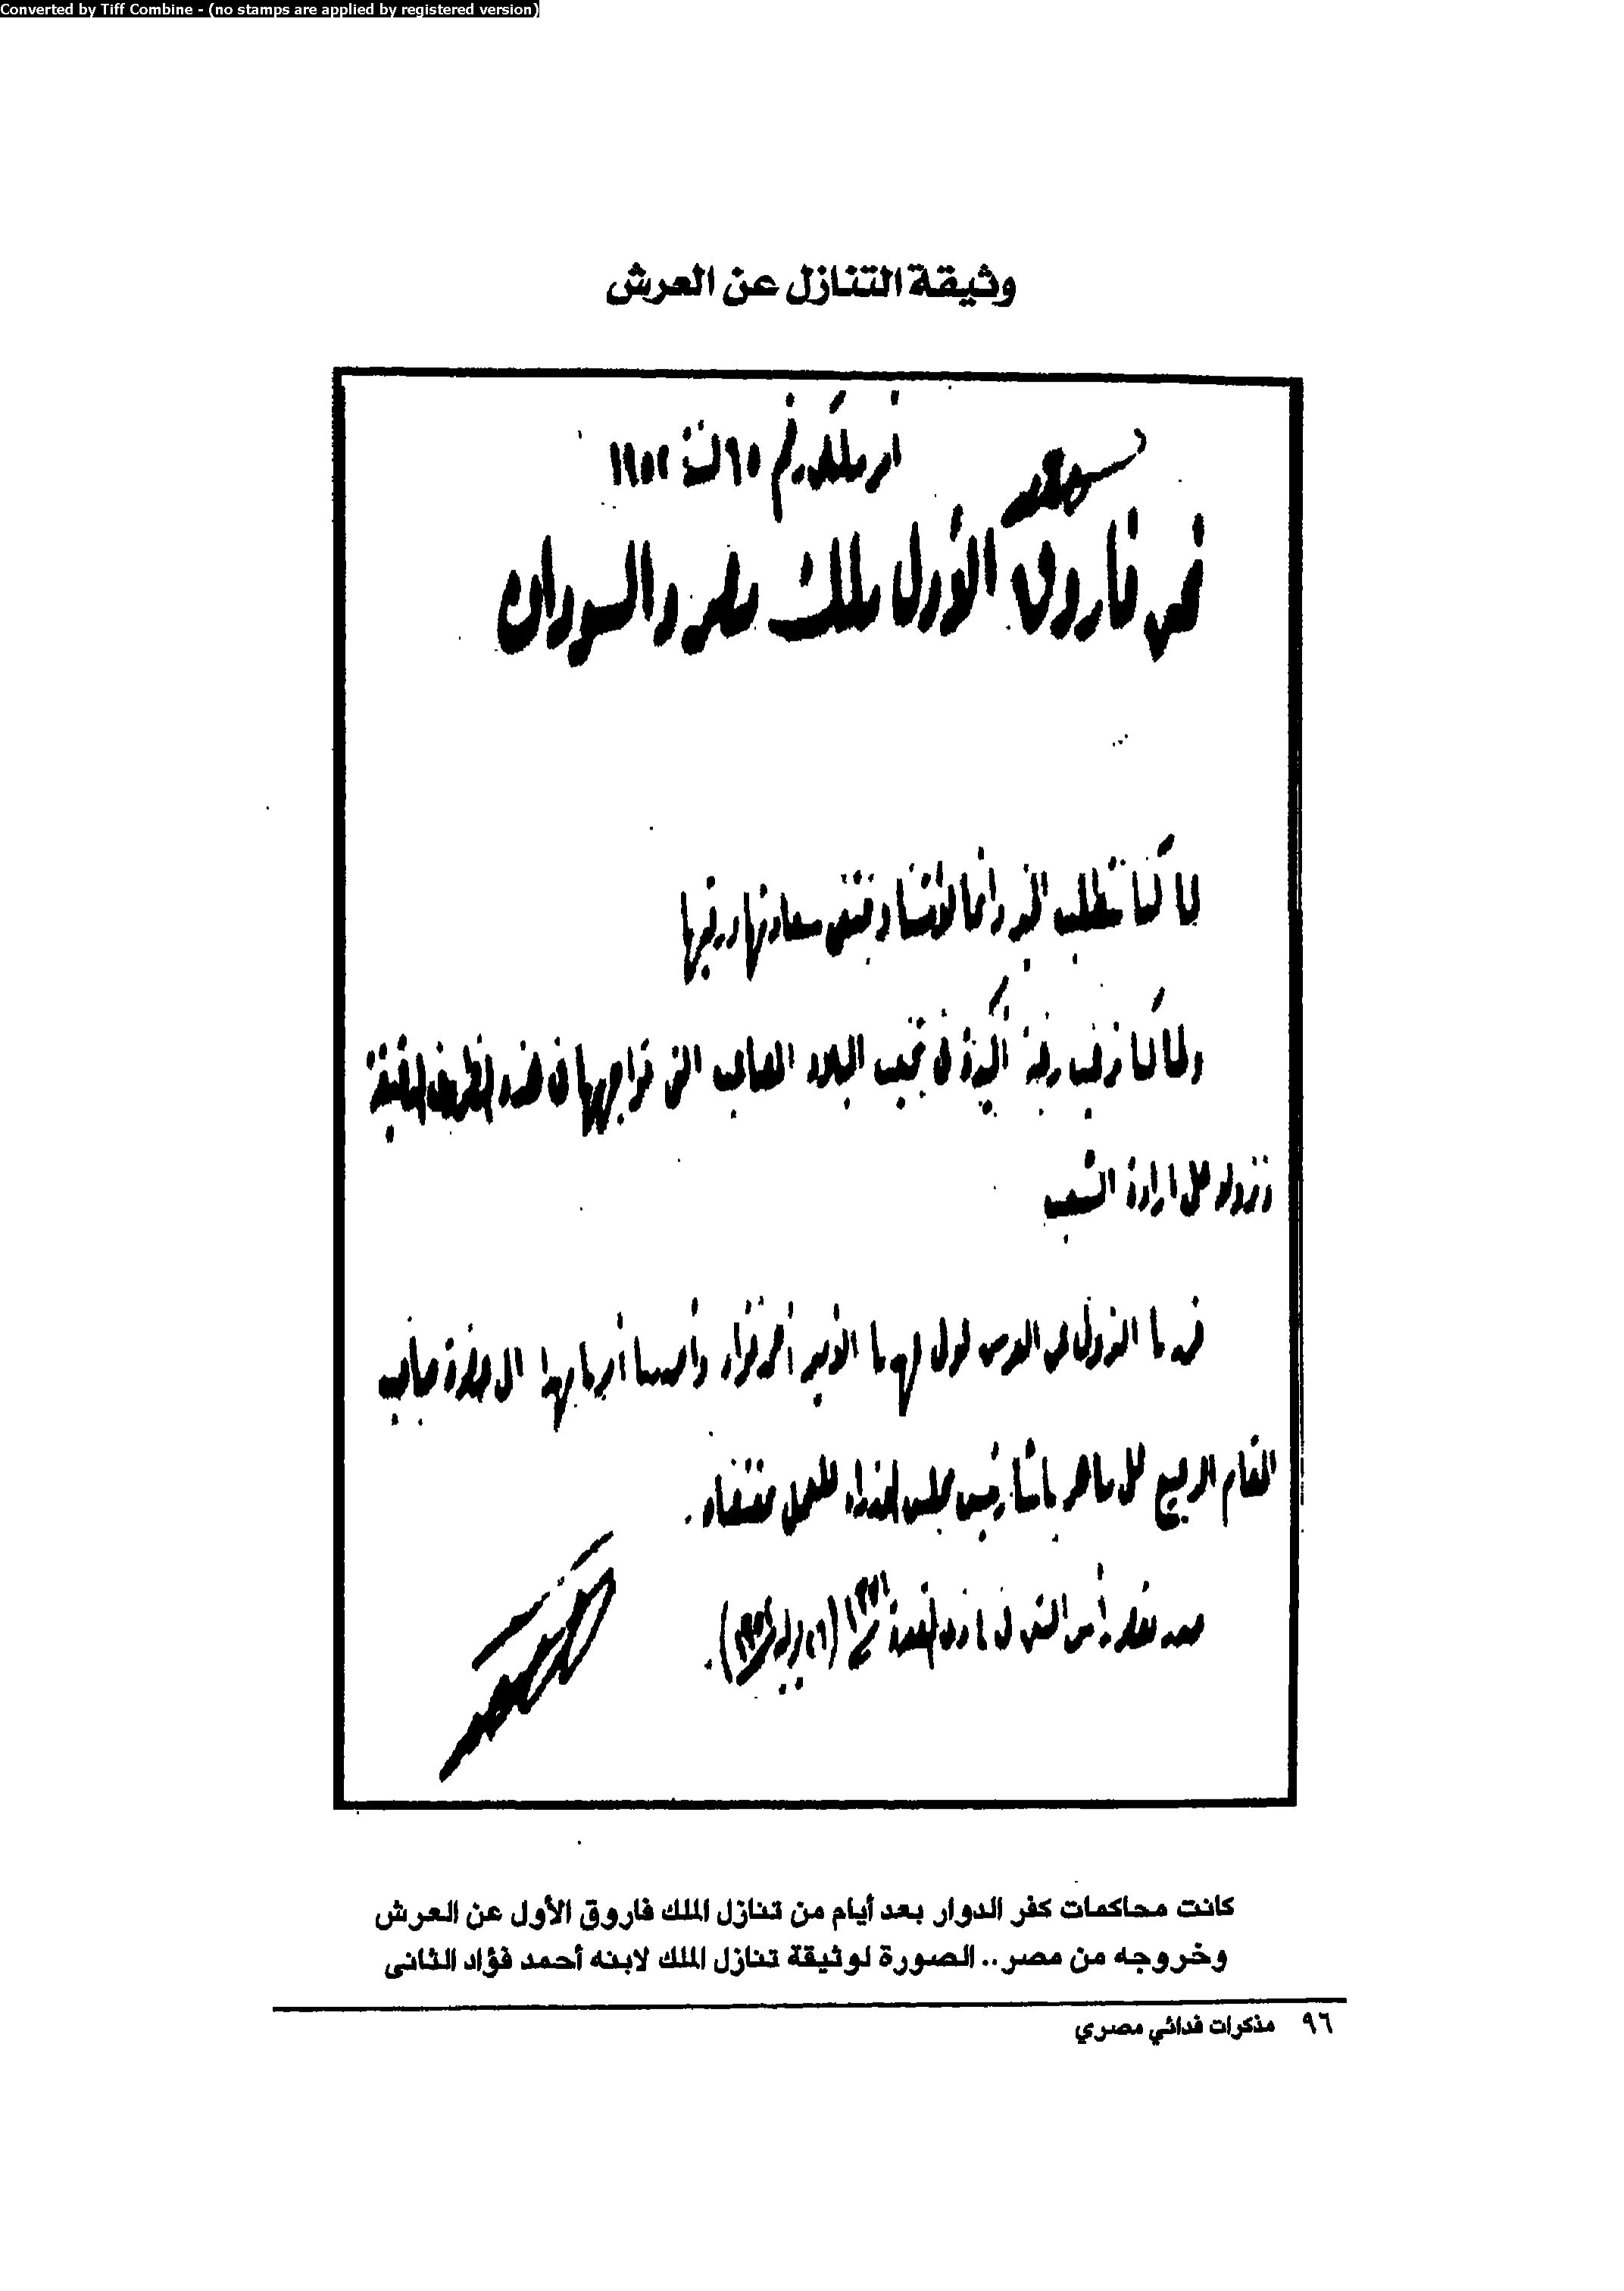 Converted by Tiff Combine - (no stamps are applied by registered version)
وثيقة التنازل عن العرش
أمر ملكي رقم ٦٥ لسنة ١٩٥٢
نحن فاروق الأول ملك مصر والسودان
لما كنا نتطلب الخير دائما لأمتنا ونبتغى سعادتها ورقيها
ولما كنا نرغب رغبة أكيدة في تجنيب البلاد المصاعب التى تواجهها في هذه الظروف الدقيقة
ونزولا على إرادة الشعب
قررنا النزول عن العرش لولى عهدنا الأمير أحمد فؤاد وأصدرنا أمرنا بهذا الى حضرة صاحب
المقام الرفيع على ماهر باشا رئيس مجلس الوزراء للعمل بمقتضاه.
صدر بقصر رأس التين في ٤ ذى القعدة ١٣٧١ (٢٦ يوليه ١٩٥٢).
كانت محاكمات كفر الدوار بعد أيام من تنازل الملك فاروق الأول عن العرش
وخروجه من مصر.. الصورة لوثيقة تنازل الملك لابنه أحمد فؤاد الثانى
٩٦ مذكرات فدائي مصري